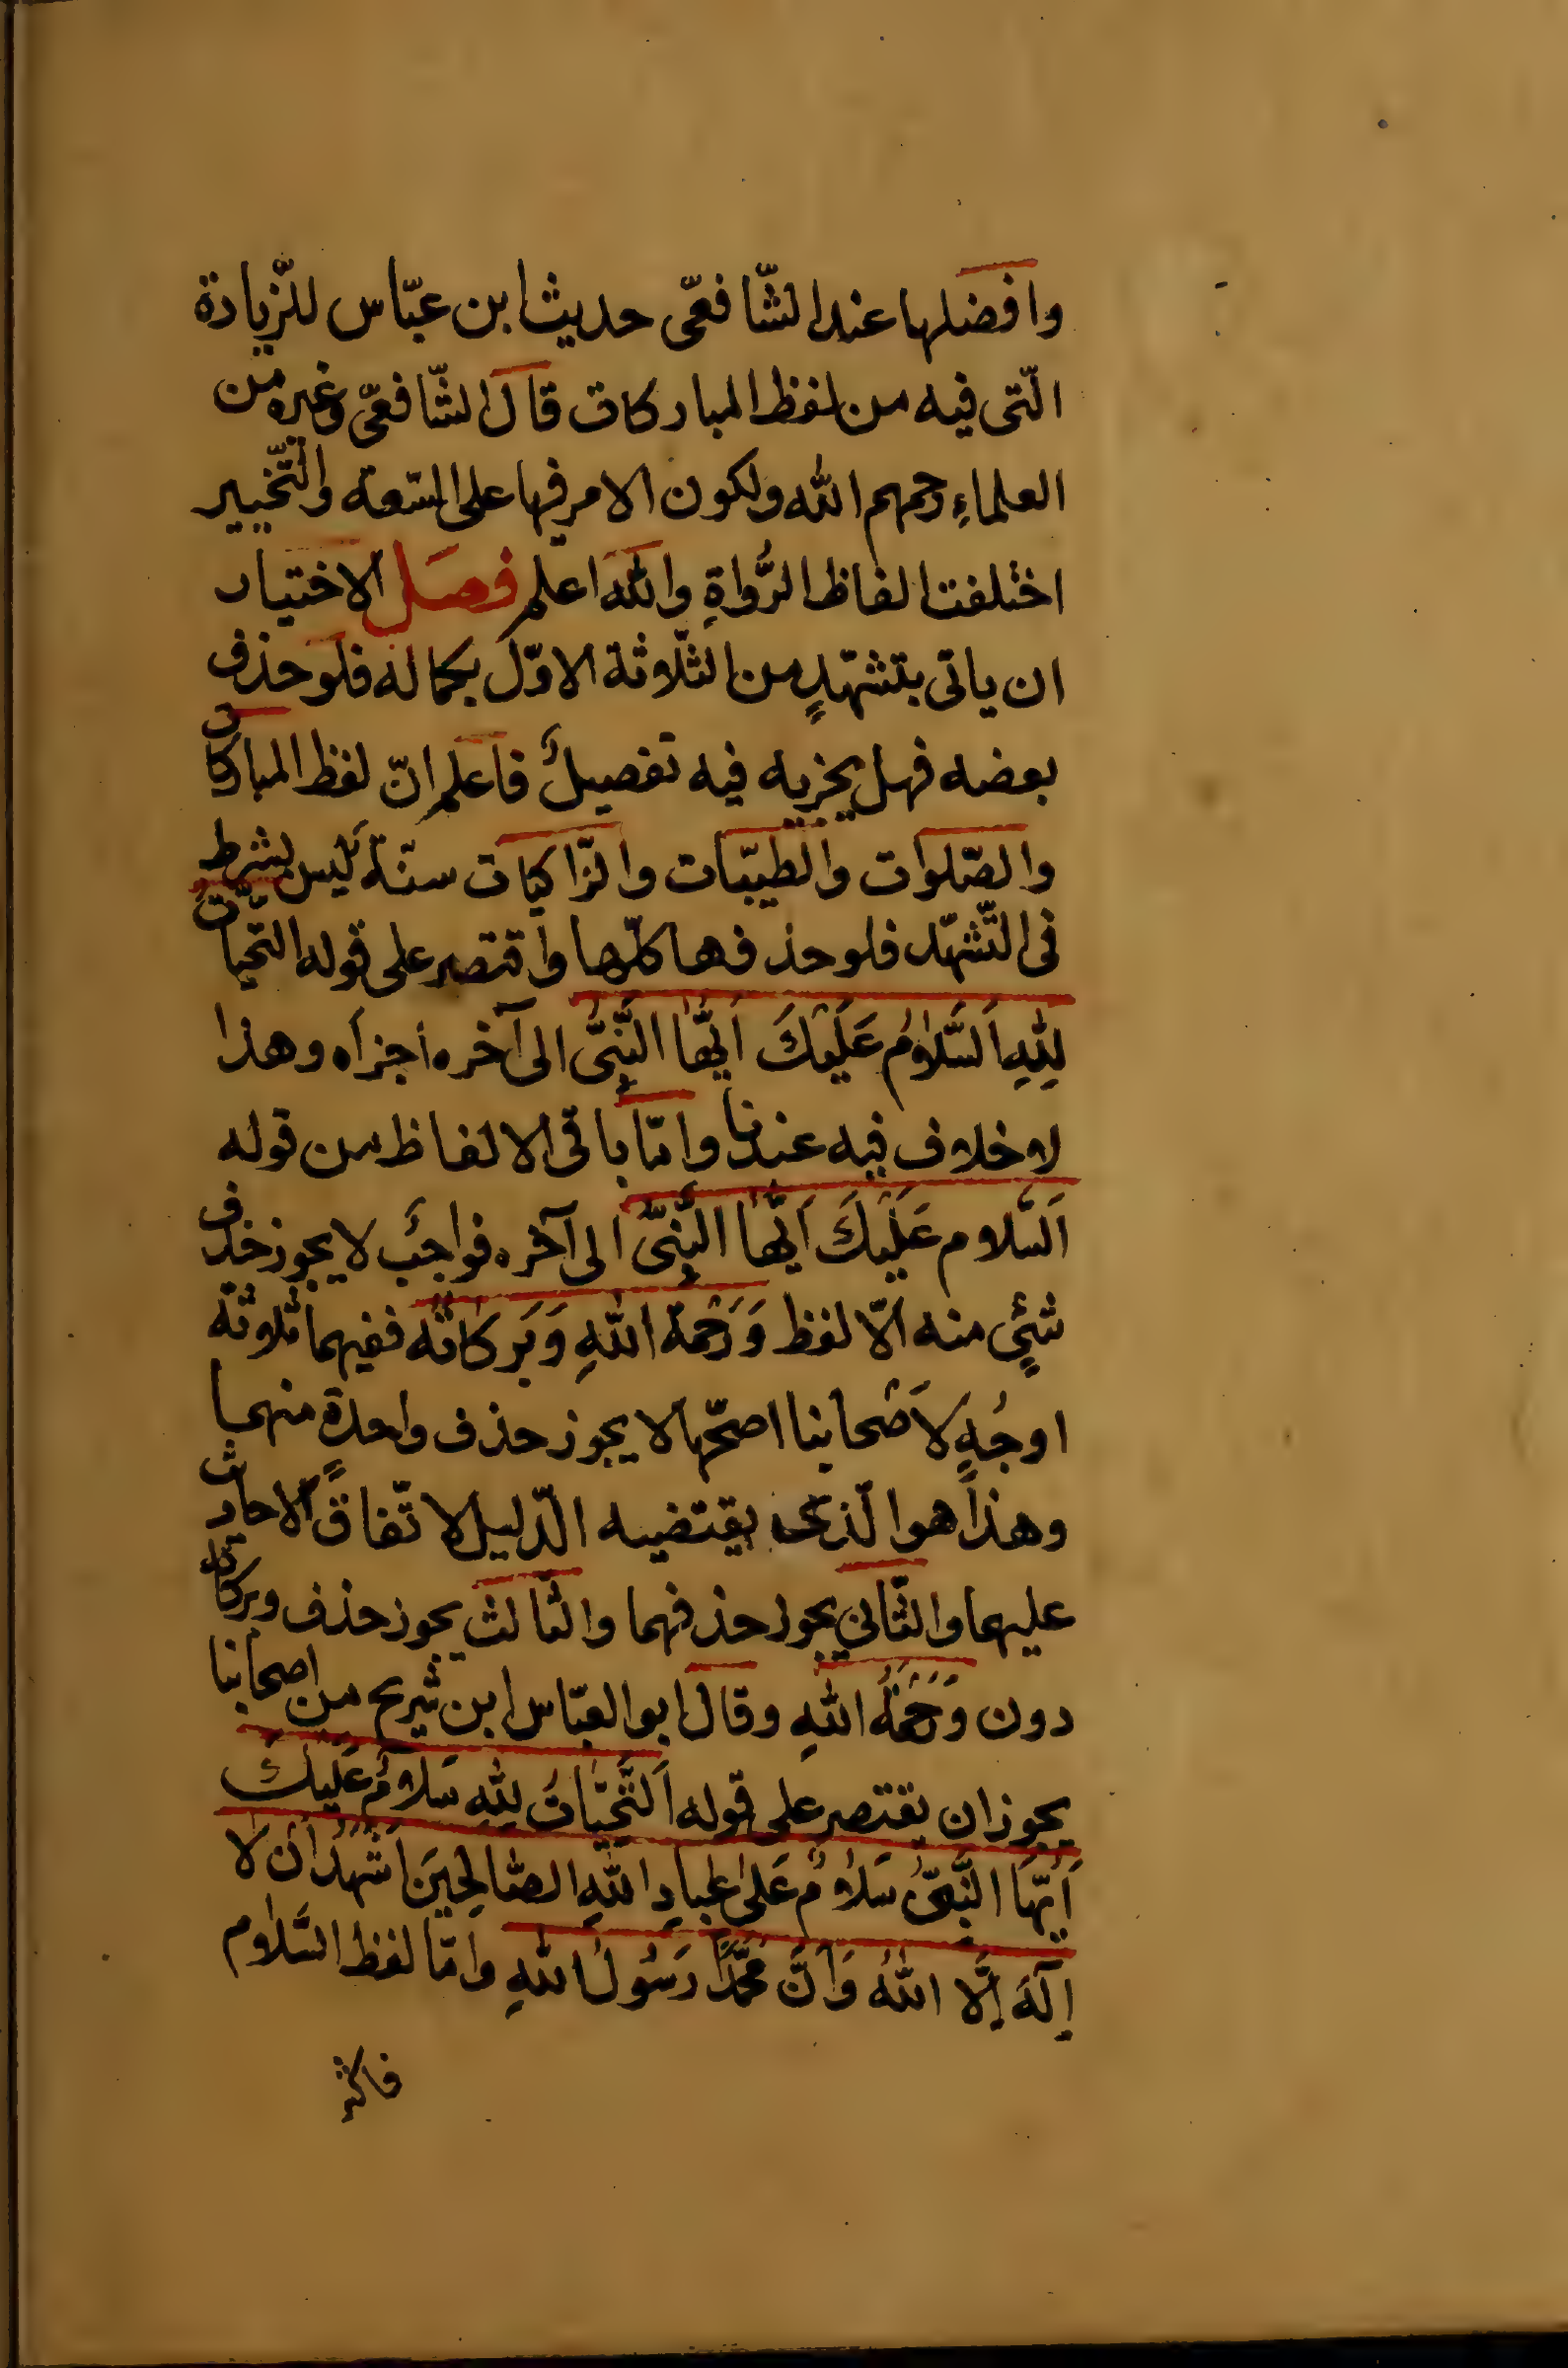 وافضلها عند الشّافعّى حديث ابن عبّاس للزّيادة
الّتى فيه من لفظ المباركات قال الشّافعّى وغيره من
العلماءِ رحمهم الله ولكون الامر فيها على السّعة والتّخيير
اختلفت الفاظ الرُّواةِ والله اعلم فصل الاختيار
ان ياتى بتشهّدٍ من الثّلاثة الاوّل بكماله فلو حذف
بعضه فهل يجزيه فيه تفصيلٌ فاعلم انّ لفظ المباركات
والصّلوات والطيبّات والزّاكيات سنّة ليس بشرط
فى التّشهّد فلو حذفها كلّها واقتصر على قوله التّحيّاتُ
لِلّٰهِ اَلسَّلَامُ عَلَيْكَ اَيُّهَا النَّبِىُّ الى آخره أجزأه وهذا
لا خلاف فيه عندنا وامّا باقى الالفاظ من قوله
اَلسَّلام عَلَيْكَ اَيُّهَا النَّبِىُّ الى آخره فواجبٌ لا يجوز حذف
شئٍ منه الّا لفظ وَرَحْمَة اللهِ وَبَرَكَاتُه ففيهما ثلاثة
اوجُهٍ لاَصْحابنا اصحّها لا يجوز حذف واحدةٍ منهما
وهذا هو الّذى يقتضيه الدّليل لاتّفاق الاحاديث
عليهما والثّانى يجوز حذفهما والثالث يجوز حذف وبركاته
دون وَرَحْمَةُ اللهِ وقال ابو العبّاس ابن شريح من اصحابنا
يجوز ان يقتصر على قوله اَلتَّحِيَّاتُ لِلّٰهِ سَلَامٌ عَلَيْكَ
اَيُّهَا النَّبِىُّ سَلَامٌ عَلَى عِبَادِ اللهِ الصَّالِحِينَ اَشْهَدُ اَنْ لَا
اِلٰهَ اِلَّا اللهُ وَاَنَّ مُحَمَّدًا رَسُولُ اللهِ وامّا لفظ السَّلام
فاكثر